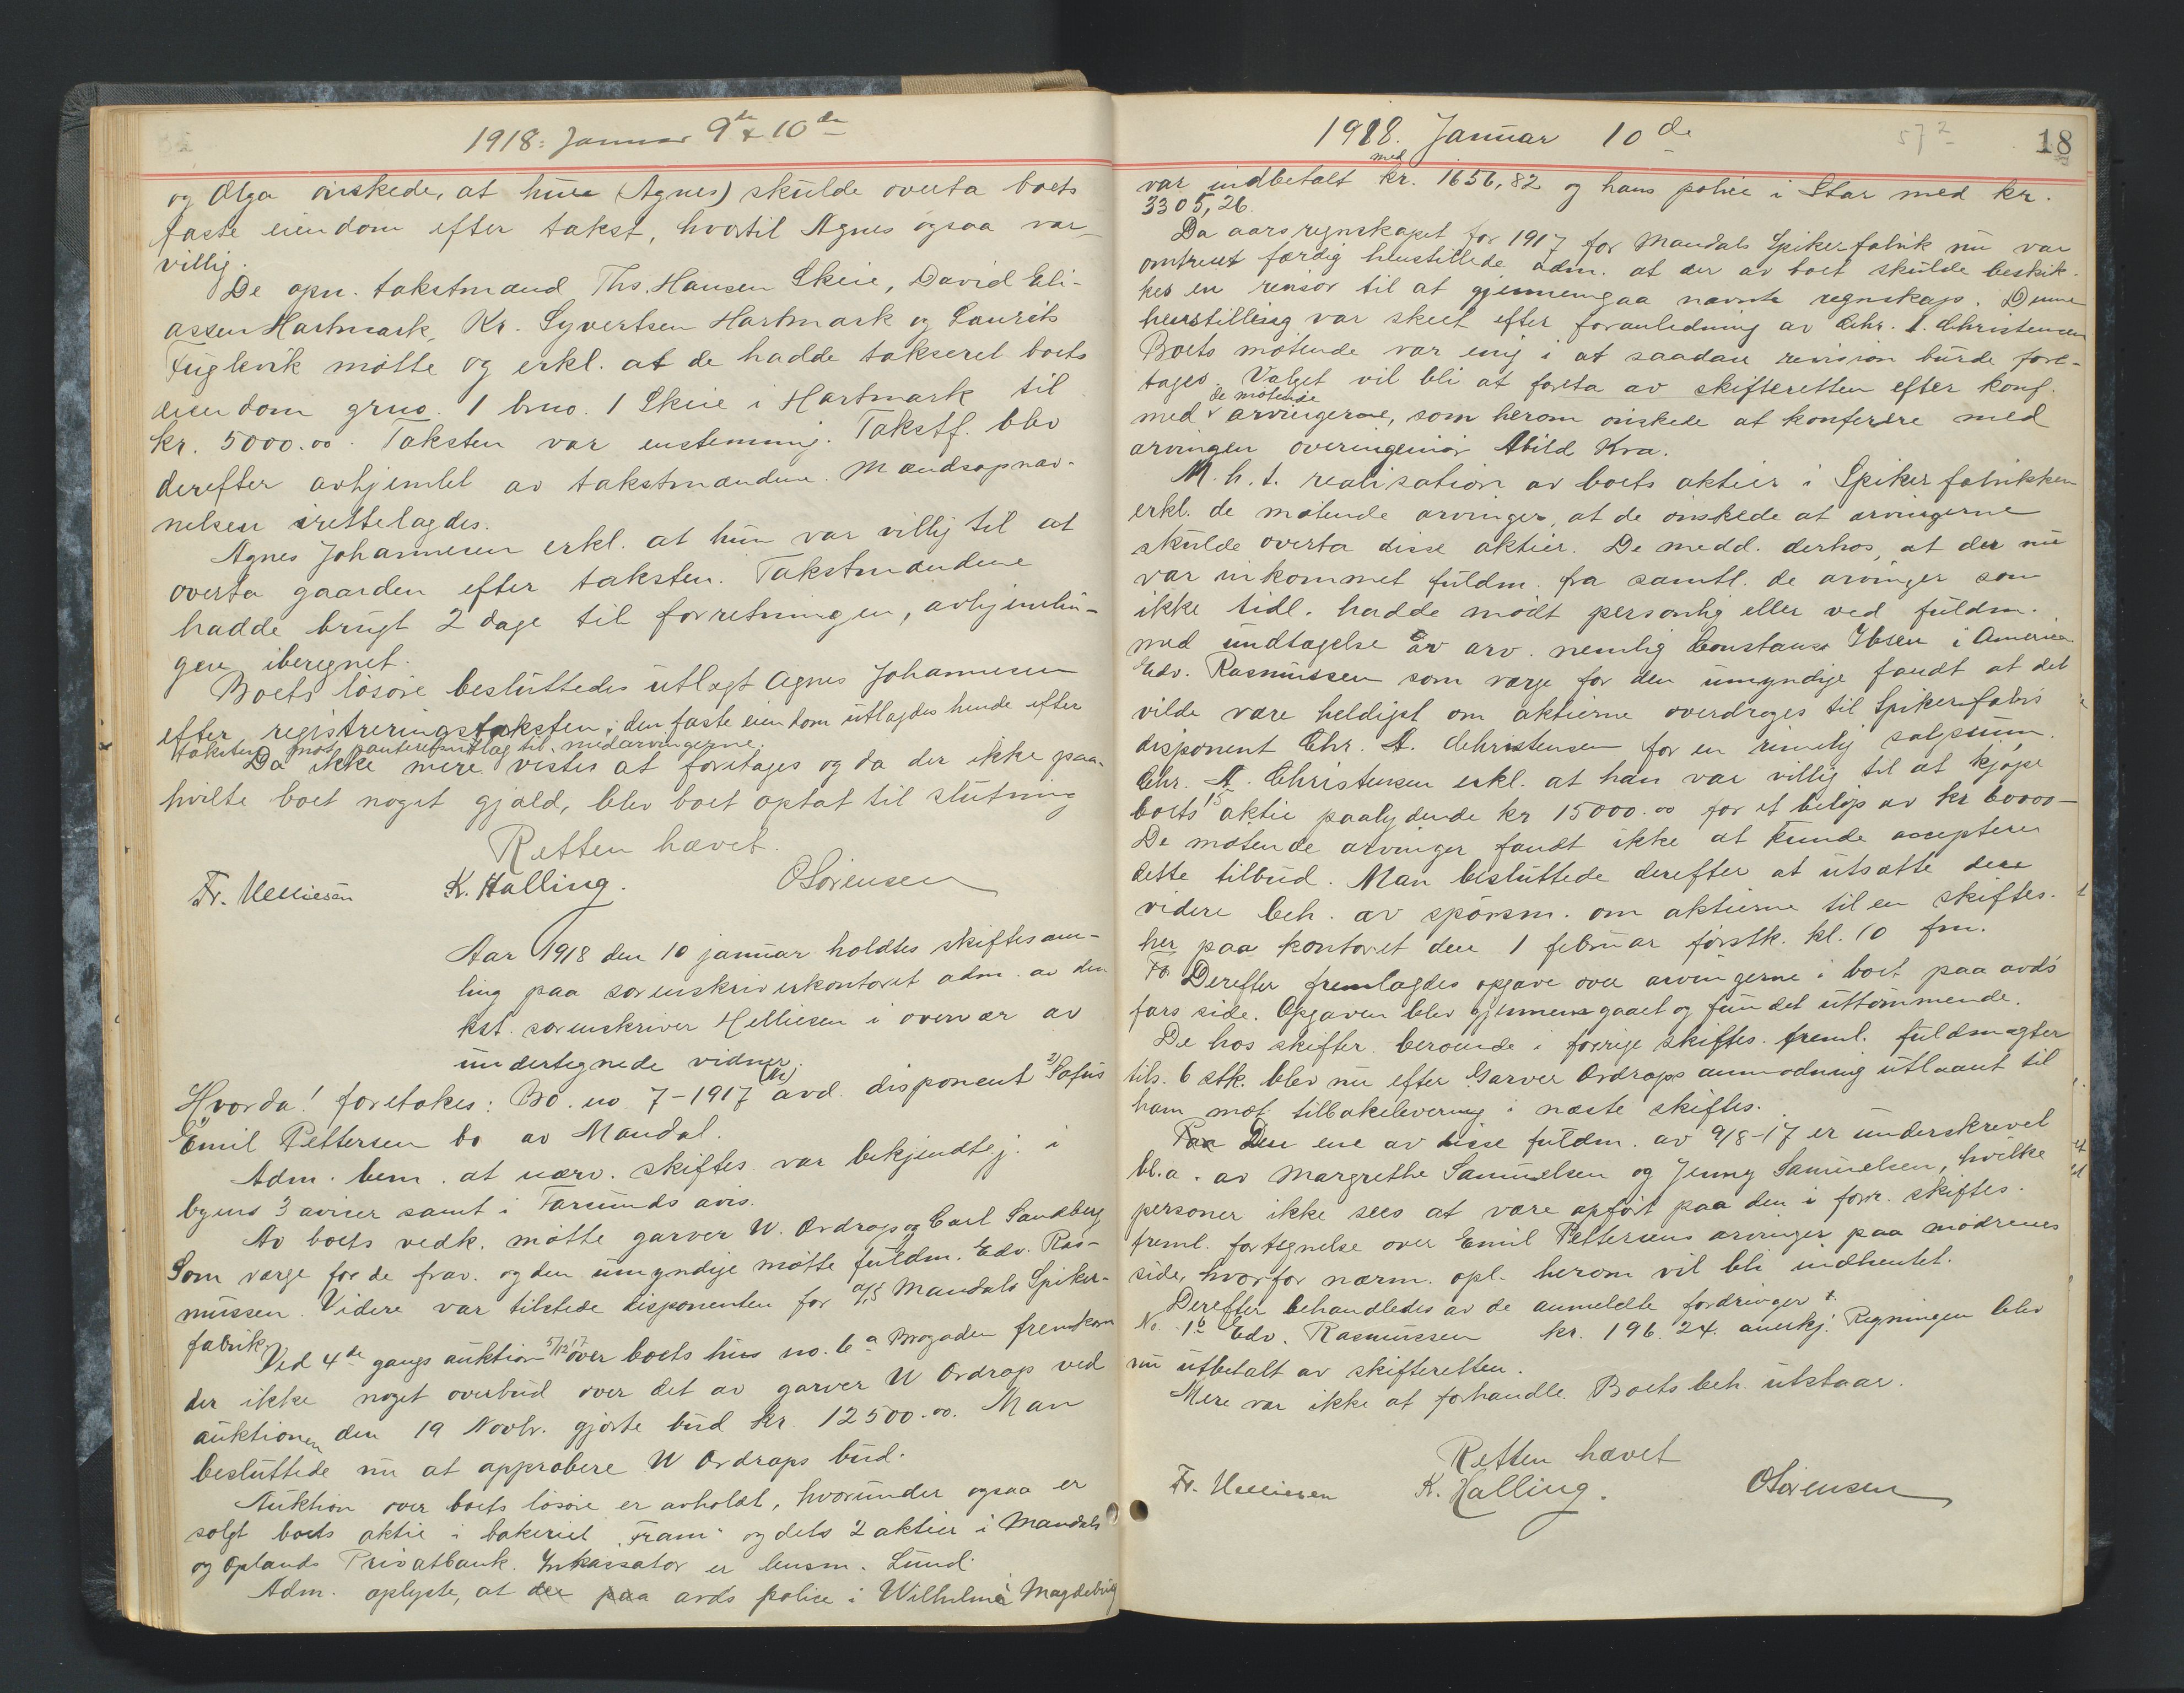 1918: Januar 9de & 10de
og Olga ønskede, at hun (Agnes) skulde overta boets
faste eiendom efter takst, hvortil Agnes ogsaa var
villig.
De opn. takstmænd Ths. Hansen Skeie, David Eli-
assen Hartmark, Kr. Syvertsen Hartmark og Laurits
Fuglevik møtte og erkl. at de hadde takseret boets
eiendom grno. 1 brno. 1 Skeie i Hartmark til
kr. 5000.00. Taksten var enstemmig. Takstf. blev
derefter avhjemlet av takstmændene. Mændsopnæv-
nelsen irettelagdes.
Agnes Johannesen erkl. at hun var villig til at
overta gaarden efter taksten. Takstmændene
hadde brugt 2 dage til forretningen, avhjemlin-
gen iberegnet.
Boets løsøre besluttedes utlagt Agnes Johannesen
efter registreringstaksten; den faste eiendom utlagdes hende efter
taksten mot panteretutlæg til medarvingerne.
Da ikke mere vistes at foretages og da der ikke paa-
hvilte boet noget gjæld, blev boet optat til slutning
Retten hævet.
Fr. Helliesen K. Halling. O Sørensen
Aar 1918 den 10 januar holdtes skiftesam-
ling paa sorenskriverkontoret adm. av den
kst. sorenskriver Helliesen i overvær av
undertegnede vidner.
Hvorda! foretokes: Bo. no 7-1917 (M) avd. disponent 2) Pofus
1) Emil Pettersen bo av Mandal.
Adm. bem. at nærv. skiftes. var bekjendtgj. i
byens 3 aviser samt i Farsunds avis.
Av boets vedk. møtte garver W. Ordrop og Carl Sandberg
Som værge for de frav. og den umyndige møtte fuldm. Edv. Ras-
mussen. Videre var tilstede disponenten for a/s Mandals Spiker-
fabrik.
Ved 4de gangs auktion 5/12 17 over boets hus no. 6a Brogaden fremkom
der ikke noget overbud over det av garver W Ordrop ved
auktionen den 19 Novbr. gjorte bud kr. 12500.00. Man
besluttede nu at approbere W Ordrops bud.
Auktion over boets løsøre er avholdt, hvorunder ogsaa er
solgt boets aktie i bakeriet "Fram" og dets 2 aktier i Mandals
og Oplands Privatbank. Inkassator er lensm. Lund.
Adm. oplyste, at der paa avds police i Wilhelma i Magdeburg
1918. Januar 10de
57 2
18
var indbetalt med kr. 1656,82 og hans police i Star med kr.
3305,26.
Da aarsregnskapet for 1917 for Mandals Spikerfabrik nu var
omtrent færdig henstillede adm. at der av boet skulde beskik-
kes en revisor til at gjennemgaa nævnte regnskap. Denne
henstilling var skeet efter foranledning av Chr. A. Christensen
Boets møtende var enig i at saadan revision burde fore-
tages. Valget vil bli at foreta av skifteretten efter konf.
med de møtende arvingerne, som herom ønskede at konferere med
arvingen overingeniør Abild Kra.
M. h. t. realisation av boets aktier i Spikerfabrikken
erkl. de møtende arvinger, at de ønskede at arvingerne
skulde overta disse aktier. De medd. derhos, at der nu
var inkommet fuldm. fra samtl. de arvinger som
ikke tidl. hadde møtt personlig eller ved fuldm.
med undtagelse av arv. nemlig Constanse Ibsen i America
Edv. Rasmussen som værge for den umyndige fandt at det
vilde være heldigst om aktierne overdroges til Spikerfabr's
disponent Chr. A. Christensen for en rimelig salgssum.
Chr. A. Christensen erkl. at han var villig til at kjøpe
boets 15 aktie paalydende kr 15000.00 for et beløp av kr 60000-
De møtende arvinger fandt ikke at kunde acceptere
dette tilbud. Man besluttede derefter at utsætte den
videre beh. av spørsm. om aktierne til en skiftes.
her paa kontoret den 1 februar førstk. kl. 10 fm.
Fo Derefter fremlagdes opgave over arvingerne i boet paa avds
fars side. Opgaven blev gjennemgaaet og fundet uttømmende.
De hos skifter. beroende i forrige skiftes. freml. fuldmagter
tils. 6 stk. blev nu efter Garver Ordrops anmodning utlaant til
ham mot tilbakelevering i næste skiftes.
Paa Den ene av disse fuldm. av 9/8-17 er underskrevet
bl.a. av Margrethe Samuelsen og Jenny Samuelsen, hvilke
personer ikke sees at være opført paa den i forr. skiftes.
freml. fortegnelse over Emil Pettersens arvinger paa mødrenes
side, hvorfor nærm. opl. herom vil bli indhentet.
Derefter behandledes av de anmeldte fordringer:
No. 1b Edv. Rasmussen kr. 196.24. anerkj. Regningen blev
nu utbetalt av skifteretten.
Mere var ikke at forhandle. Boets beh. utstaar.
Retten hævet
Fr. Helliesen K. Halling. O Sørensen